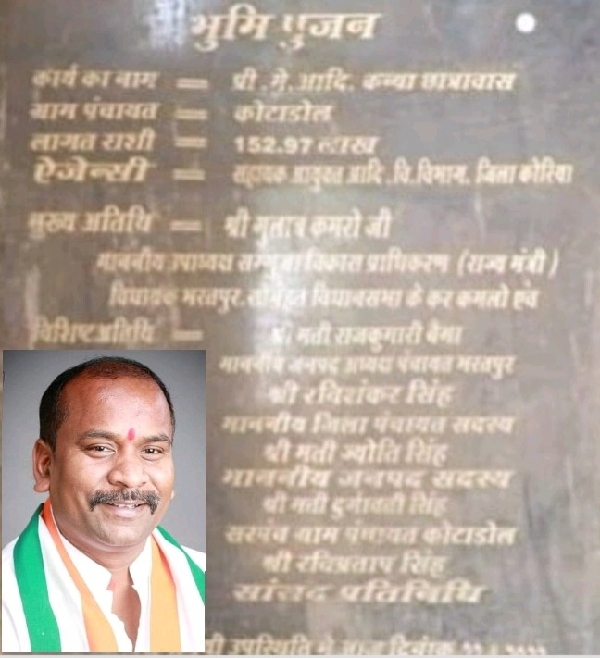 भुमि पुजन
कार्य का नाम = प्री .मे. आदि. कन्या छात्रावास
ग्राम पंचायत = कोटाडोल
लागत राशी = 152.97 लाख
ऐजेन्सी = सहायक आयुक्त आदि .वि.विभाग. जिला कोरिया
मुख्य अतिथि = श्री गुलाब कमरो जी
माननीय उपाध्यक्ष विकास प्राधिकरण (राज्य मंत्री)
विधायक भरतपुर विधानसभा के कर कमलो एवं
विशिष्ट अतिथि = श्री मती राजकुमारी बैगा
माननीय जनपद अध्यक्ष पंचायत भरतपुर
श्री रविशंकर सिंह
माननीय जिला पंचायत सदस्य
श्री मती ज्योति सिंह
माननीय जनपद सदस्य
श्री मती सिंह
सरपंच ग्राम पंचायत कोटाडोल
श्री रविप्रताप सिंह
सांसद प्रतिनिधि
उपस्थिति मे आज दिनांक